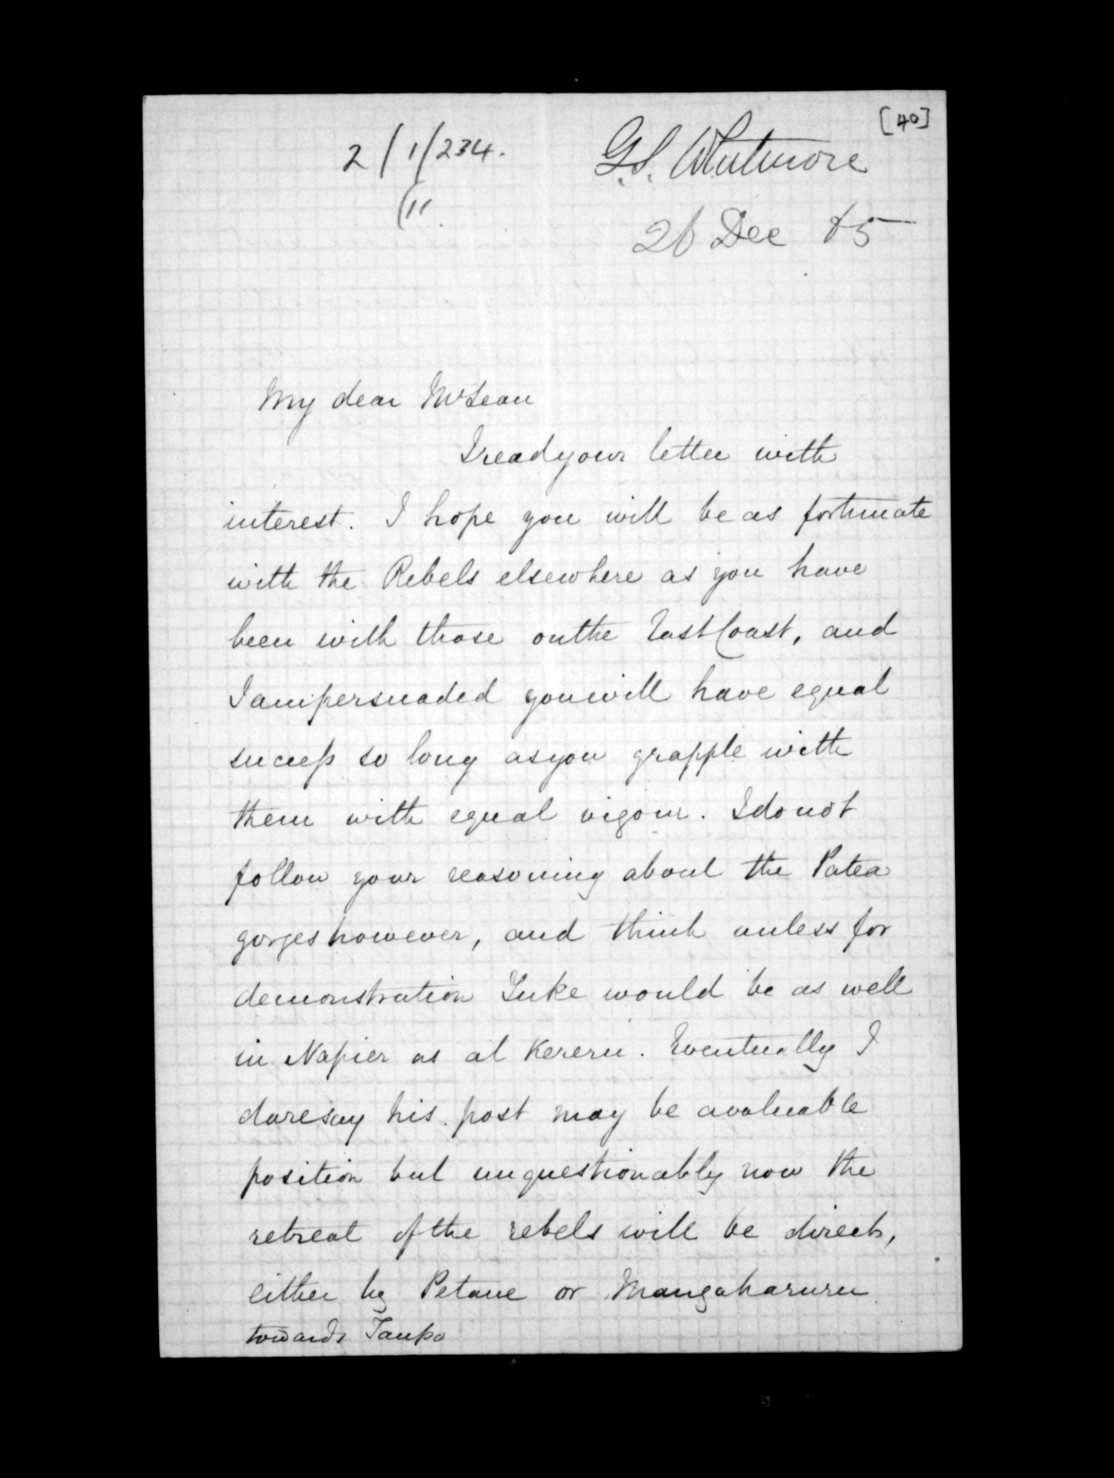 [40]
2/1/234.
(11.
G.S. Whitmore
26 Dec 65
My dear McLean
I read your letter with
interest. I hope you will be as fortunate
with the Rebels elsewhere as you have
been with those on the East Coast, and
I am persuaded you will have equal
success so long as you grapple with
them with equal vigour. I do not
follow your reasoning about the Patea
gorges however, and think unless for
demonstration Tuke would be as well
in Napier as at Kereru. Eventually I
daresay his post may be a valuable
position but unquestionably now the
retreat of the rebels will be direct,
either by Petane or Mangaharuru
towards Taupo